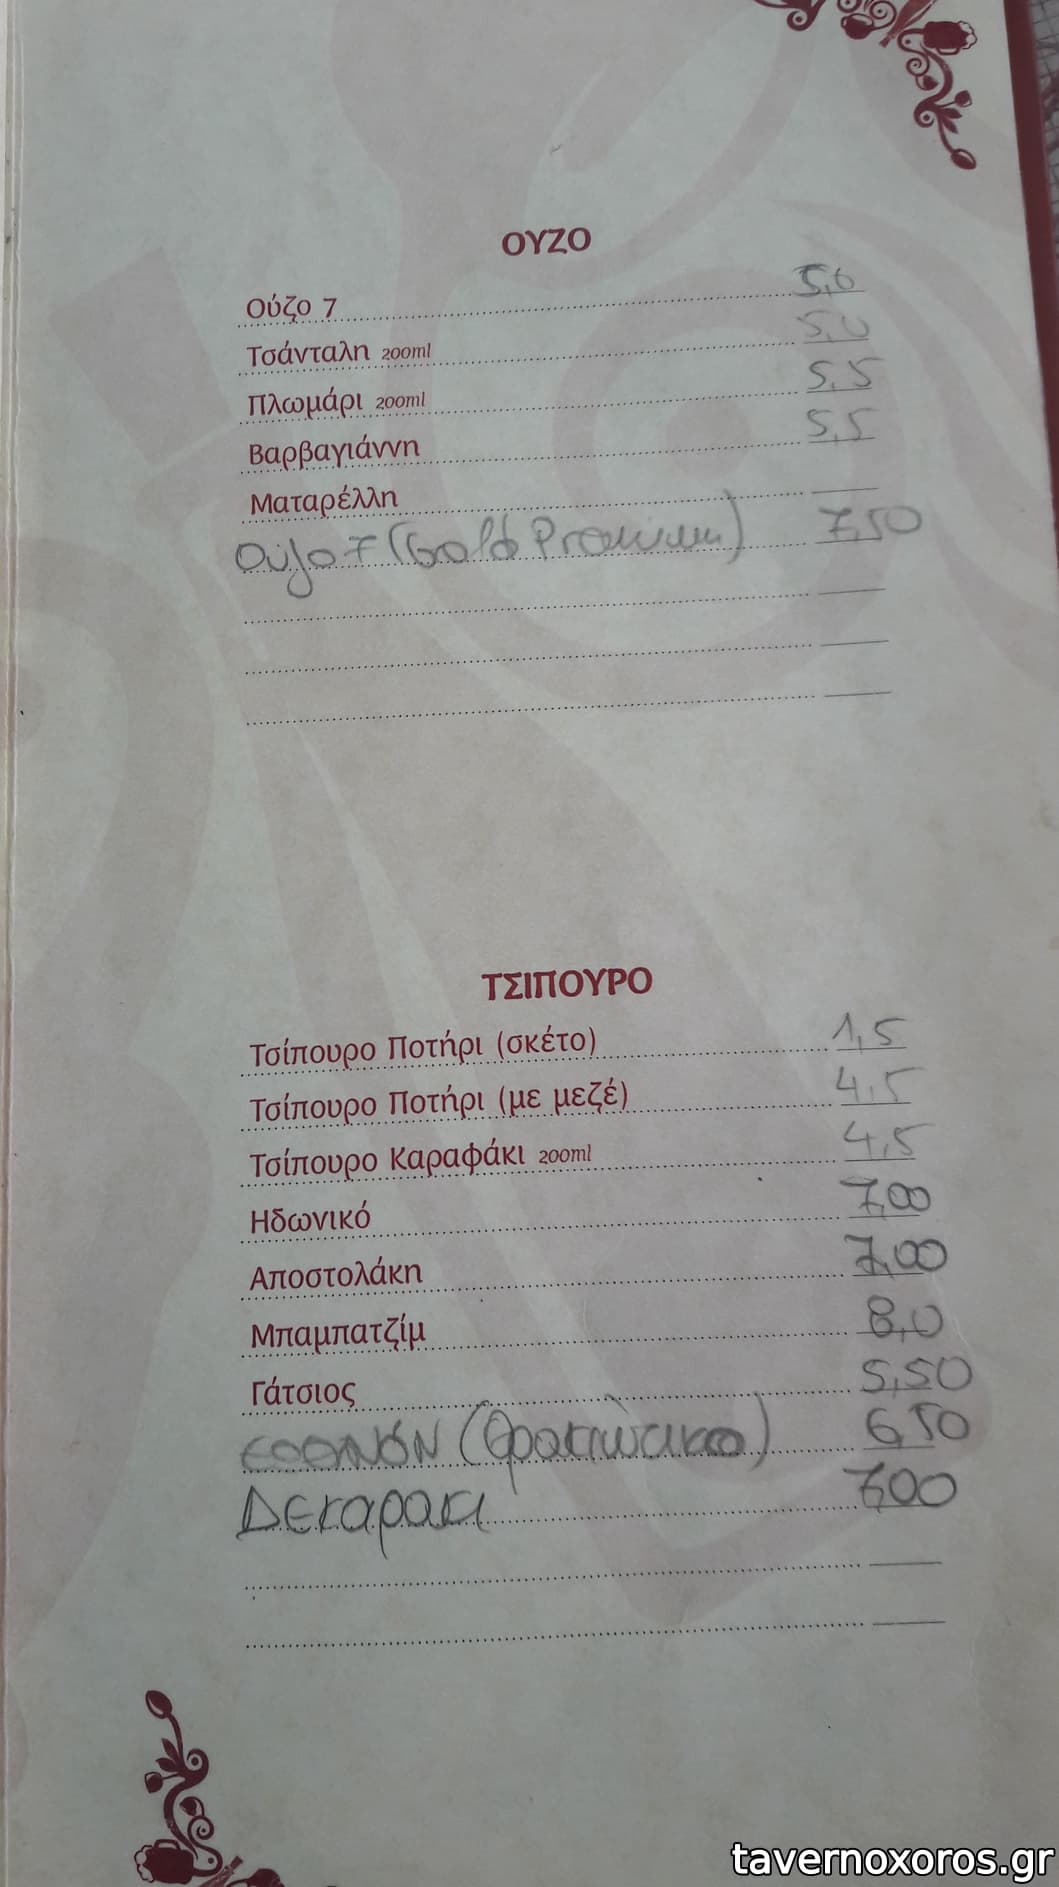 ΟΥΖΟ
Ούζο 7 5,0
Τσάνταλη 200ml 5,0
Πλωμάρι 200ml 5,5
Βαρβαγιάννη 5,5
Ματαρέλλη
Ούζο 7 (Gold Premium) 7,50
ΤΣΙΠΟΥΡΟ
Τσίπουρο Ποτήρι (σκέτο) 1,5
Τσίπουρο Ποτήρι (με μεζέ) 4,5
Τσίπουρο Καραφάκι 200ml 4,5
Ηδωνικό 7,00
Αποστολάκη 7,00
Μπαμπατζίμ 8,0
Γάτσιος 5,50
(Θρακιώτικο) 6,50
Δεκαρακι 7,00
tavernoxoros.gr